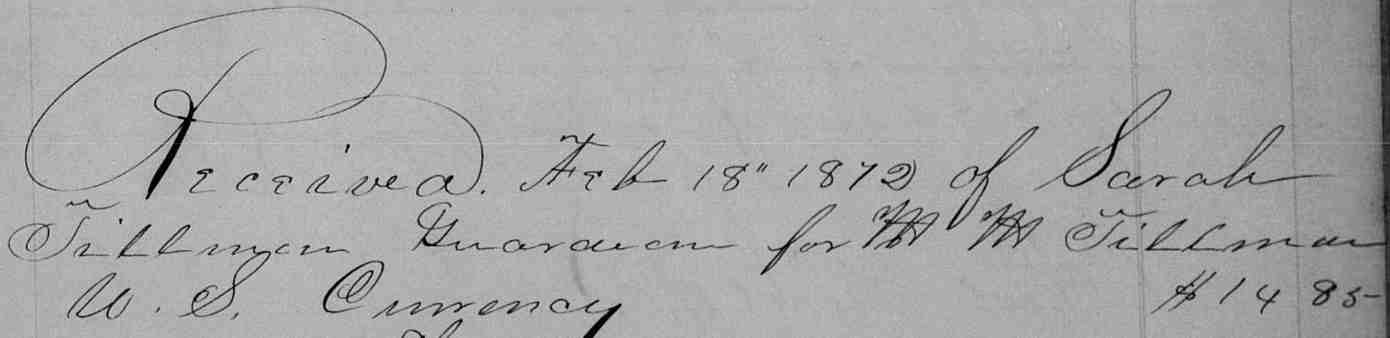 Received. Feb 18" 1872 of Sarah
Tillman Guardian for W W Tillman
U. S. Currency $14 85